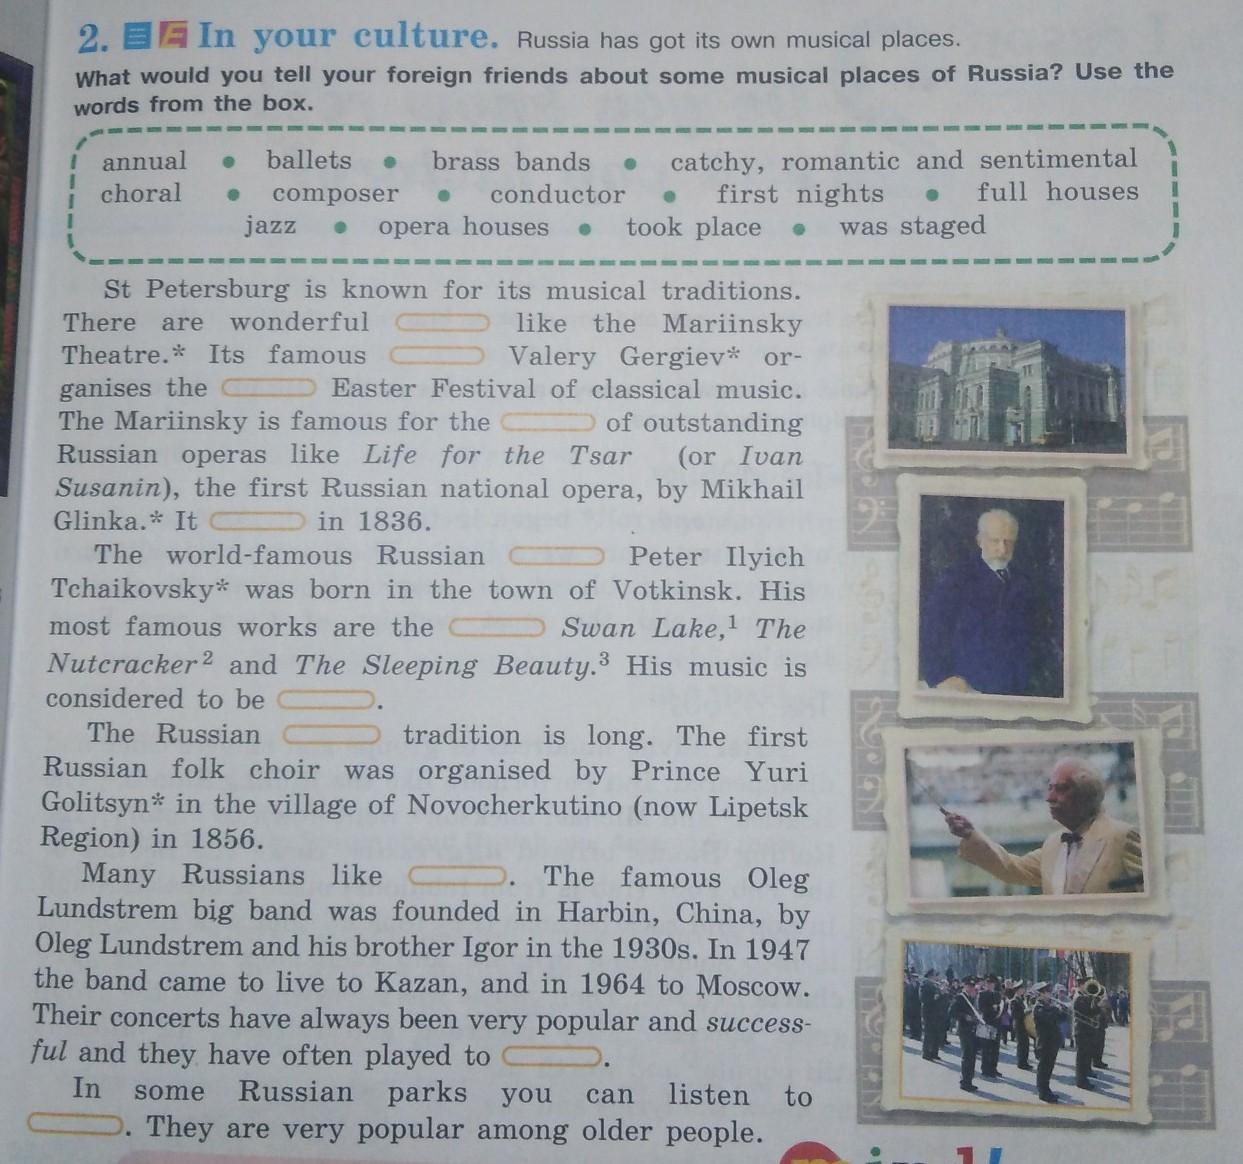 2. E In your culture. Russia has got its own musical places.
What would you tell your foreign friends about some musical places of Russia? Use the
words from the box.
annual • ballets • brass bands • catchy, romantic and sentimental
choral • composer • conductor • first nights • full houses
jazz • opera houses • took place • was staged
St Petersburg is known for its musical traditions.
There are wonderful like the Mariinsky
Theatre.* Its famous Valery Gergiev* or-
ganises the Easter Festival of classical music.
The Mariinsky is famous for the of outstanding
Russian operas like Life for the Tsar (or Ivan
Susanin), the first Russian national opera, by Mikhail
Glinka.* It in 1836.
The world-famous Russian Peter Ilyich
Tchaikovsky* was born in the town of Votkinsk. His
most famous works are the Swan Lake,¹ The
Nutcracker² and The Sleeping Beauty.³ His music is
considered to be .
The Russian tradition is long. The first
Russian folk choir was organised by Prince Yuri
Golitsyn* in the village of Novocherkutino (now Lipetsk
Region) in 1856.
Many Russians like . The famous Oleg
Lundstrem big band was founded in Harbin, China, by
Oleg Lundstrem and his brother Igor in the 1930s. In 1947
the band came to live to Kazan, and in 1964 to Moscow.
Their concerts have always been very popular and success-
ful and they have often played to .
In some Russian parks you can listen to
. They are very popular among older people.